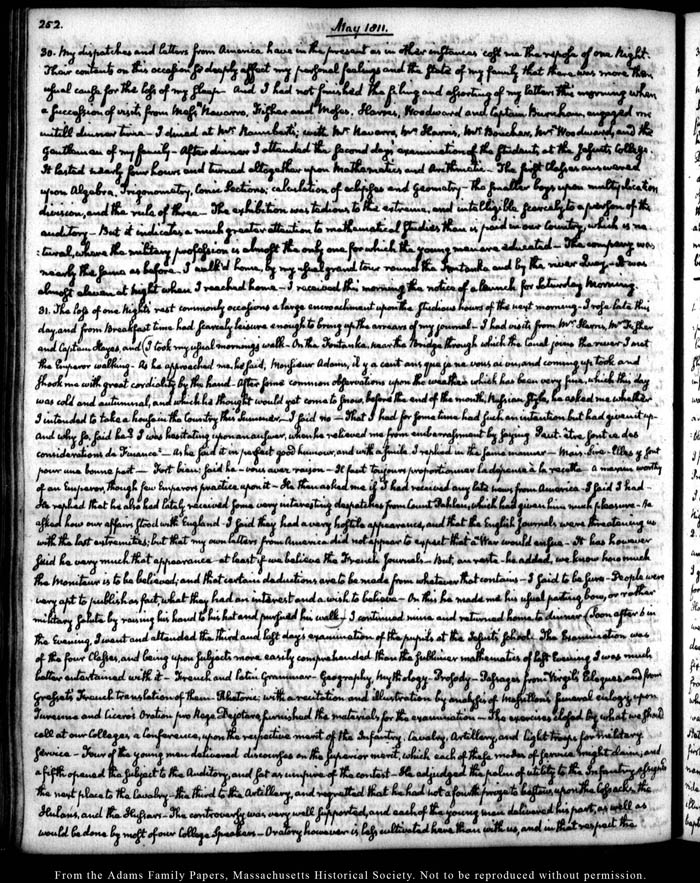 252.
May 1811.
30. My dispatches and letters from America have in the present as in other instances cost me the repose of one Night.
Their contents on this occasion so deeply affect my personal feelings and the State of my family that there was more than
usual cause for the loss of my sleep. And I had not finished the filing and assorting of my letters this morning when
a succession of visits from Messrs Navarro, Fisher and Moses, Harris, Woodward and Captain Burnham, engaged me
untill dinner time — I dined at Mr Raimbert's; with Mr Navarro, Mr Harris, Mr Bouchar, Mr Woodward, and the
Gentlemen of my family — After dinner I attended the second day's examination of the students, at the Jesuits College.
It lasted nearly four hours and turned altogether upon Mathematics and Arithmetic. The first Classes answered
upon Algebra, Trigonometry, Conic Sections, calculation of eclipses and Geometry — the smaller boys upon multiplication
division, and the rule of three — The exhibition was tedious to the extreme, and intelligible scarcely to a person of the
auditory — But it indicates a much greater attention to mathematical studies than is paid in our Country, which is na
:tural, where the military profession is almost the only one for which the young men are educated — The company was
nearly the same as before. I walk'd home, by my usual grand tour round the Fontanka and by the river Quay — It was
almost eleven at Night when I reached home — I received this morning the notice of a launch for Saturday Morning.
31. The loss of one Night's rest commonly occasions a large encroachment upon the studious hours of the next morning. I rose late this
day, and from Breakfast time had scarcely leisure enough to bring up the arrears of my journal — I had visits from Mr Harris, Mr Fisher
and Captain Hayes, and (I took my usual mornings walk — On the Fontanka, near the Bridge through which the Canal joins the river I met
the Emperor walking — As he approached me, he said, Monsieur Adams, il y a cent ans que je ne vous ai vu, and coming up took and
shook me with great cordiality by the hand — After some common observations upon the weather which has been very fine, which this day
was cold and autumnal, and which he thought would yet come to snow, before the end of the month, Russian Style, he asked me whether
I intended to take a house in the Country this summer — I said no — That I had for some time had such an intention but had given it up —
And why so, said he? I was hesitating upon an answer, when he relieved me from embarrassment by saying Peut-être sont ce des
considerations de Finance? — As he said it in perfect good humour, and with a smile, I replied in the same manner — Mais, Sire — Elles y sont
pour une bonne part — Fort bien; said he — vous avez raison — Il faut toujours proportionner la depense à la recette — A maxim worthy
of an Emperor, though few Emperors practice upon it — He then asked me if I had received any late news from America — I said I had —
He replied that he also had lately received some very interesting despatches from Count Pahlen, which had given him much pleasure — He
asked how our affairs stood with England — I said they had a very hostile appearance, and that the English Journals were threatening us
with the last extremities; but that my own letters from America did not appear to expect that a War would ensue — It has however
said he very much that appearance — at least if we believe the French Journals — But, au reste — he added, we know how much
the Moniteur is to be believed; and that certain deductions are to be made from whatever that contains — I said to be sure — People were
very apt to publish as fact, what they had an interest and a wish to believe — On this he made me his usual parting bow, or rather
military salute by raising his hand to his hat and pursued his walk) I continued mine and returned home to dinner (Soon after 6 in
the Evening, I went and attended the third and last day's examination of the pupils at the Jesuits' School. The Examination was
of the four Classes, and being upon subjects more easily comprehended than the sublimer mathematics of last Evening I was much
better entertained with it — French and Latin Grammar — Geography, Mythology — Prosody — Passages from Virgil's Eclogues and from
Gresset's French translation of them. Rhetoric; with a recitation and illustration by analysis of Mascaron's funeral eulogy upon
Turenne and Cicero's Oration pro Rege Dejotaro furnished the materials for the examination — The exercises closed by what we should
call at our Colleges a Conference, upon the respective merit of the Infantry, Cavalry, Artillery, and Light troops for military
service — Four of the young men delivered discourses on the superior merit, which each of these modes of service might claim; and
a fifth opened the subject to the Auditory, and sat as umpire of the contest — He adjudged the palm of utility to the Infantry, assigned
the next place to the Cavalry — the third to the Artillery, and regretted that he had not a fourth prize to bestow, upon the Cossacks, the
Hulans, and the Hussars — The controversy was very well supported, and each of the young men delivered his part, as well as
would be done by most of our College Speakers — Oratory however is less cultivated here than with us, and in that respect the
From the Adams Family Papers, Massachusetts Historical Society. Not to be reproduced without permission.